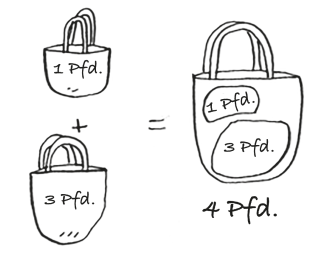 1 Pfd.
+
3 Pfd.
=
1 Pfd.
3 Pfd.
4 Pfd.